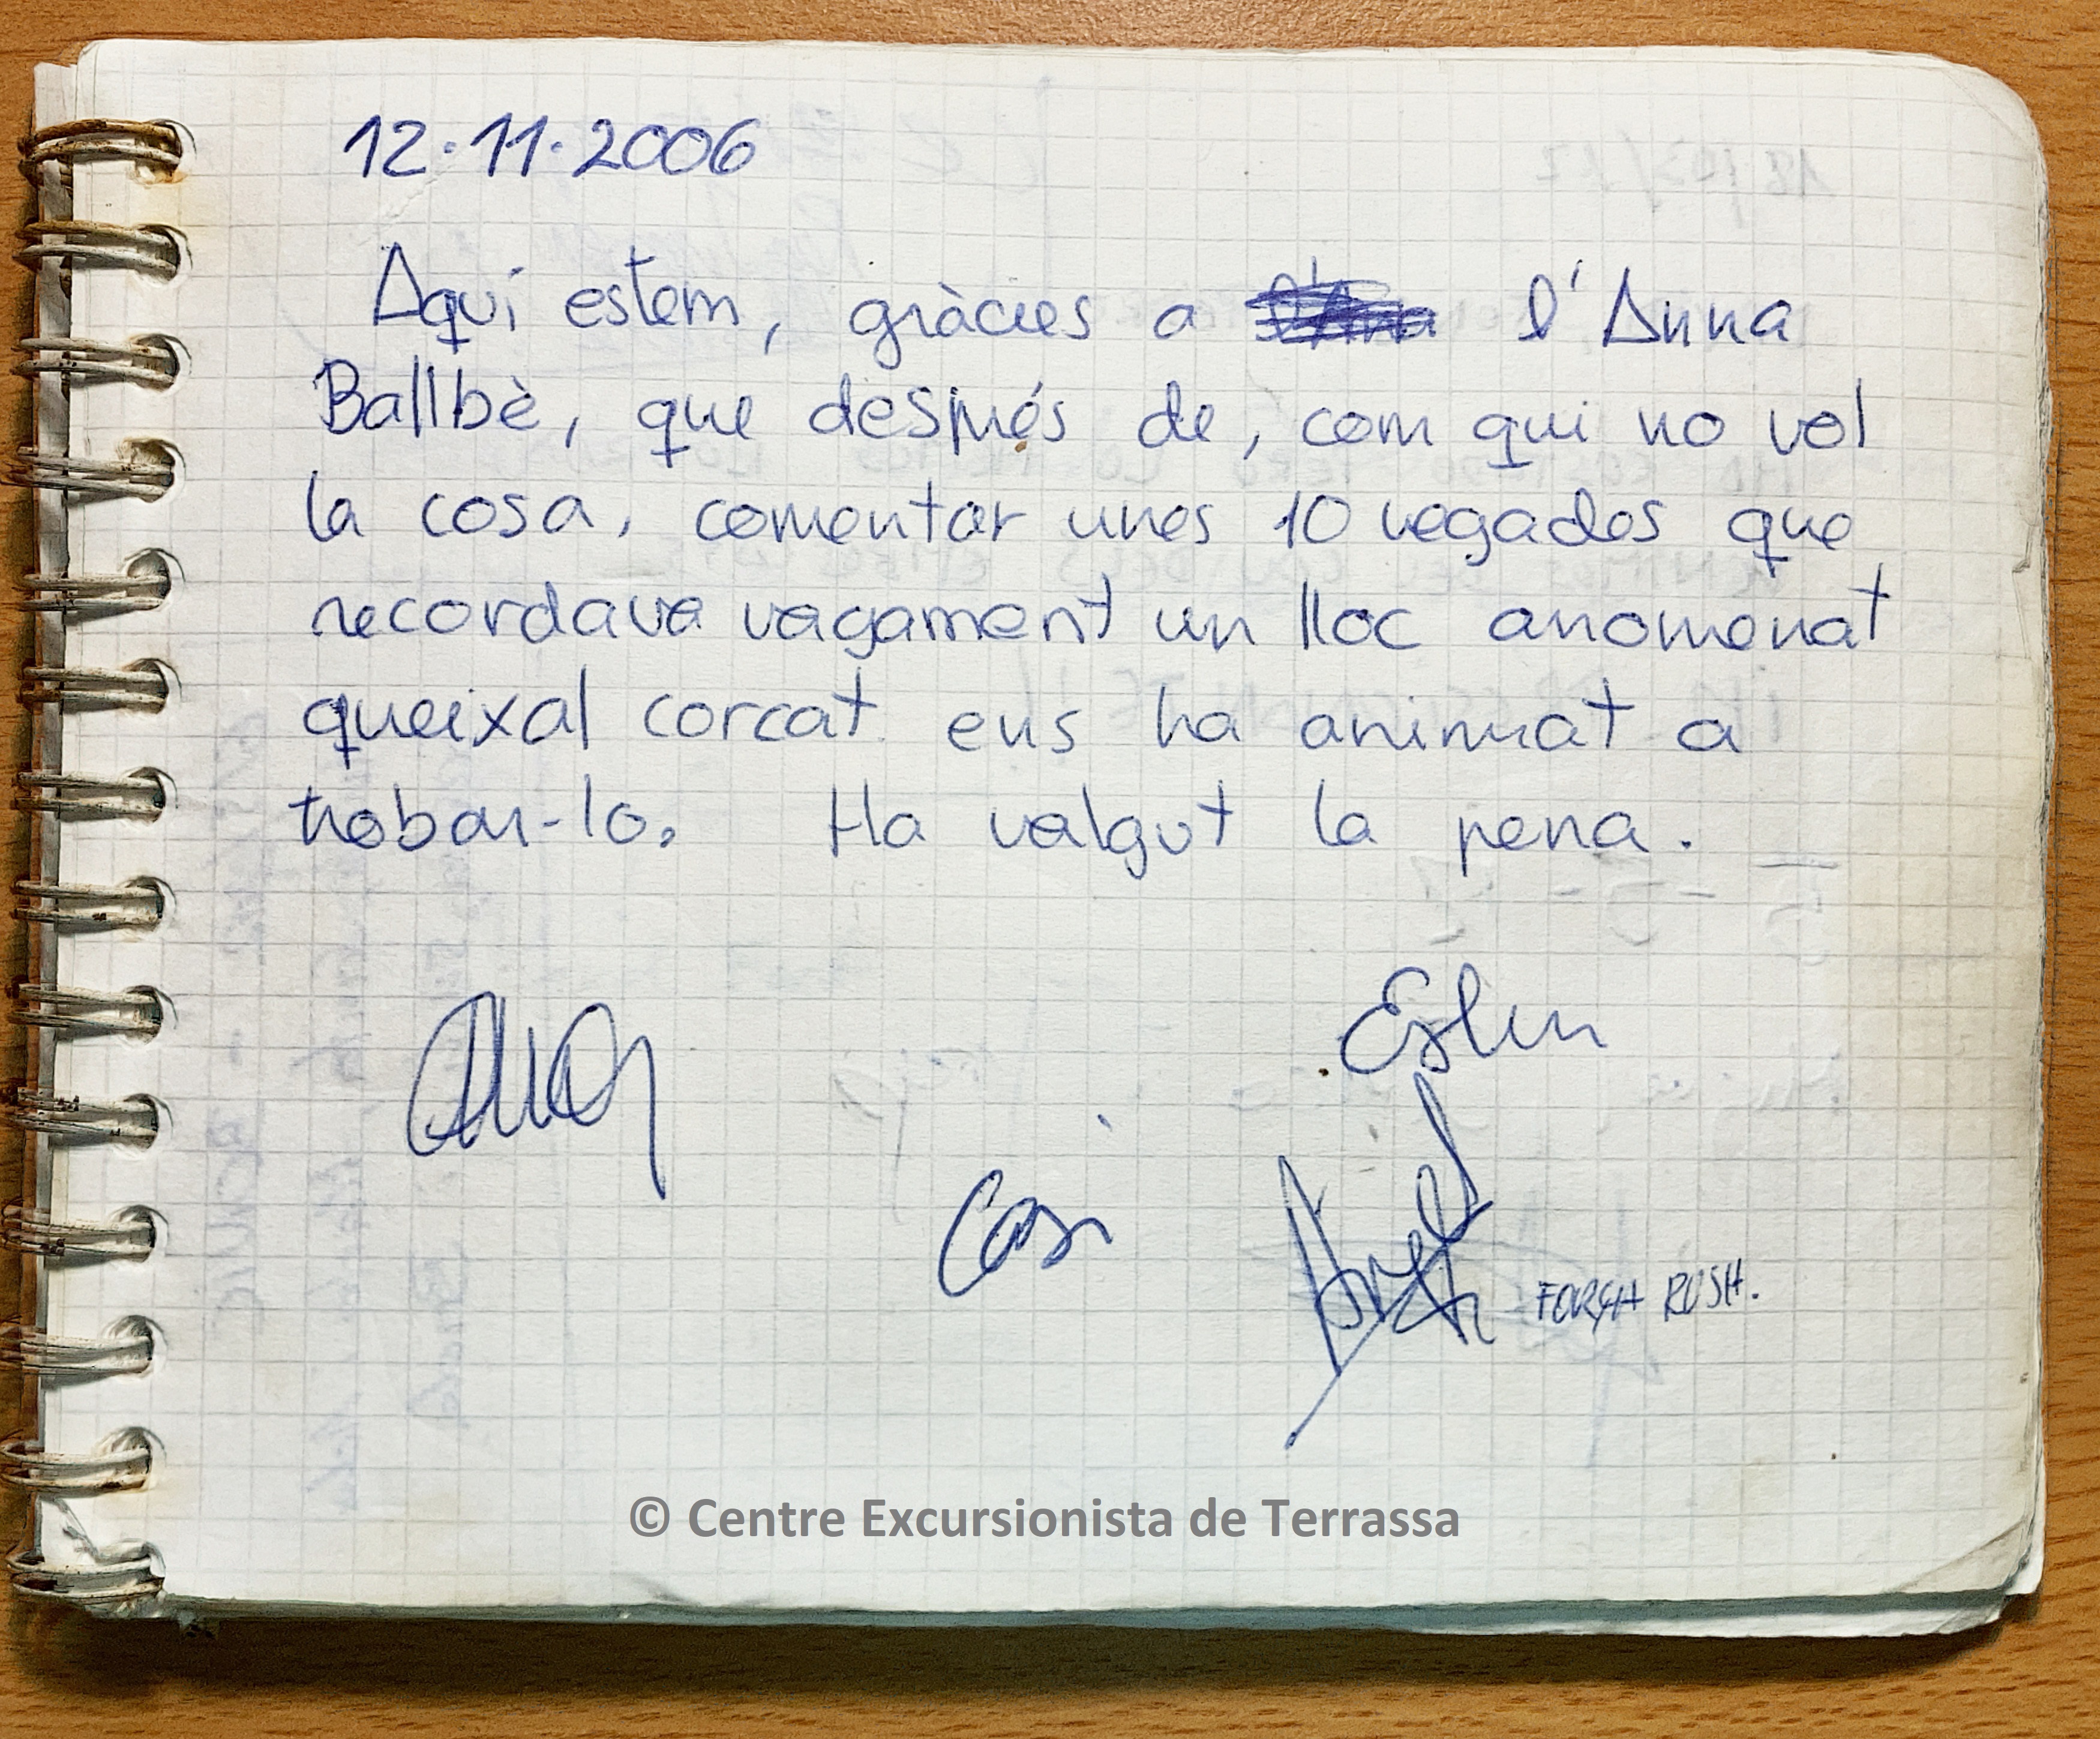 12·11·2006
Aquí estem, gràcies a l'Anna
Ballbè, que després de, com qui no vol
la cosa, comentar unes 10 vegades que
recordava vagament un lloc anomenat
queixal corcat ens ha animat a
trobar-lo. Ha valgut la pena.
© Centre Excursionista de Terrassa